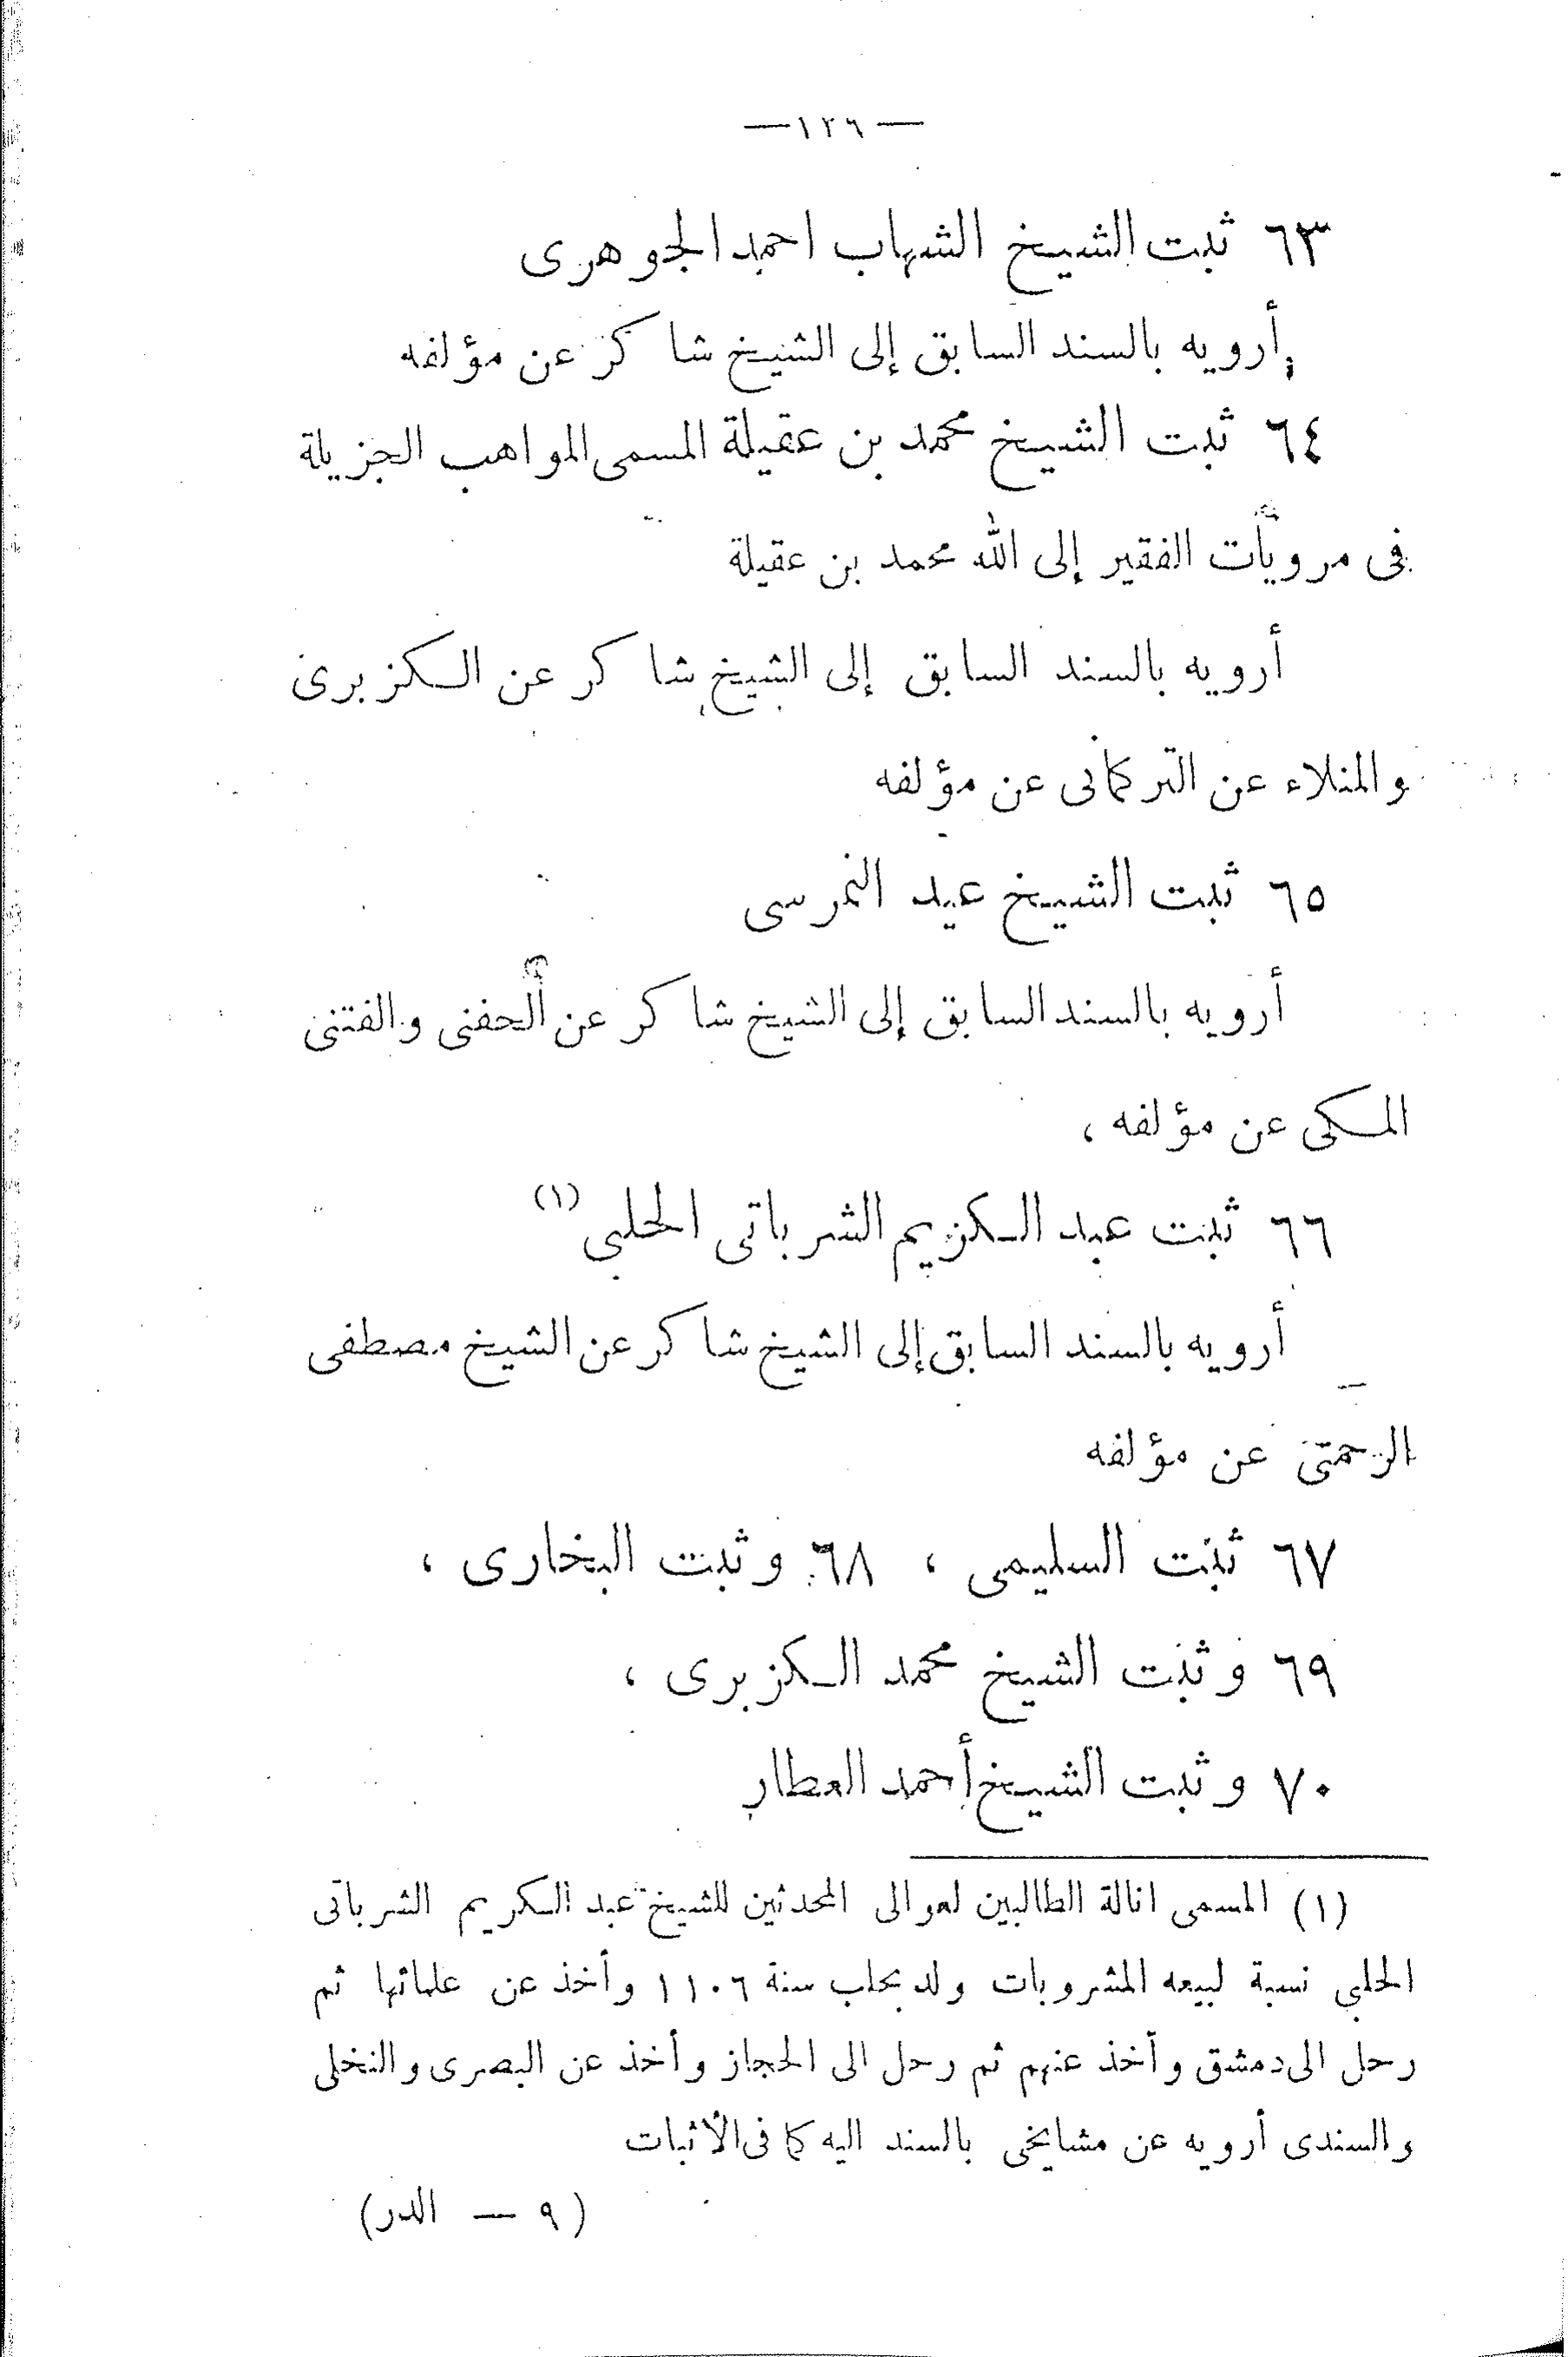 — ١٢٩ —
٦٣ ثبت الشيخ الشهاب احمد الجوهرى
أرويه بالسند السابق إلى الشيخ شاكر عن مؤلفه
٦٤ ثبت الشيخ محمد بن عقيلة المسمى المواهب الجزيلة
فى مرويات الفقير إلى الله محمد بن عقيلة
أرويه بالسند السابق إلى الشيخ شاكر عن الكزبرى
والمنلاء عن التركمانى عن مؤلفه
٦٥ ثبت الشيخ عيد النمرسى
أرويه بالسند السابق إلى الشيخ شاكر عن الحفنى والفتنى
المكى عن مؤلفه ،
٦٦ ثبت عبد الكريم الشرباتى الحلبى (١)
أرويه بالسند السابق إلى الشيخ شاكر عن الشيخ مصطفى
الرحمتى عن مؤلفه
٦٧ ثبت السليمى ، ٦٨ وثبت البخارى ،
٦٩ وثبت الشيخ محمد الكزبرى ،
٧٠ وثبت الشيخ أحمد العطار
(١) المسمى انالة الطالبين لعوالى المحدثين للشيخ عبد الكريم الشرباتى
الحلبى نسبة لبيعه المشروبات ولد بحلب سنة ١١٠٦ وأخذ عن علمائها ثم
رحل الى دمشق وأخذ عنهم ثم رحل الى الحجاز وأخذ عن البصرى والنخلى
والسندى أرويه عن مشايخى بالسند اليه كما فى الأثبات
(٩ — الدر)